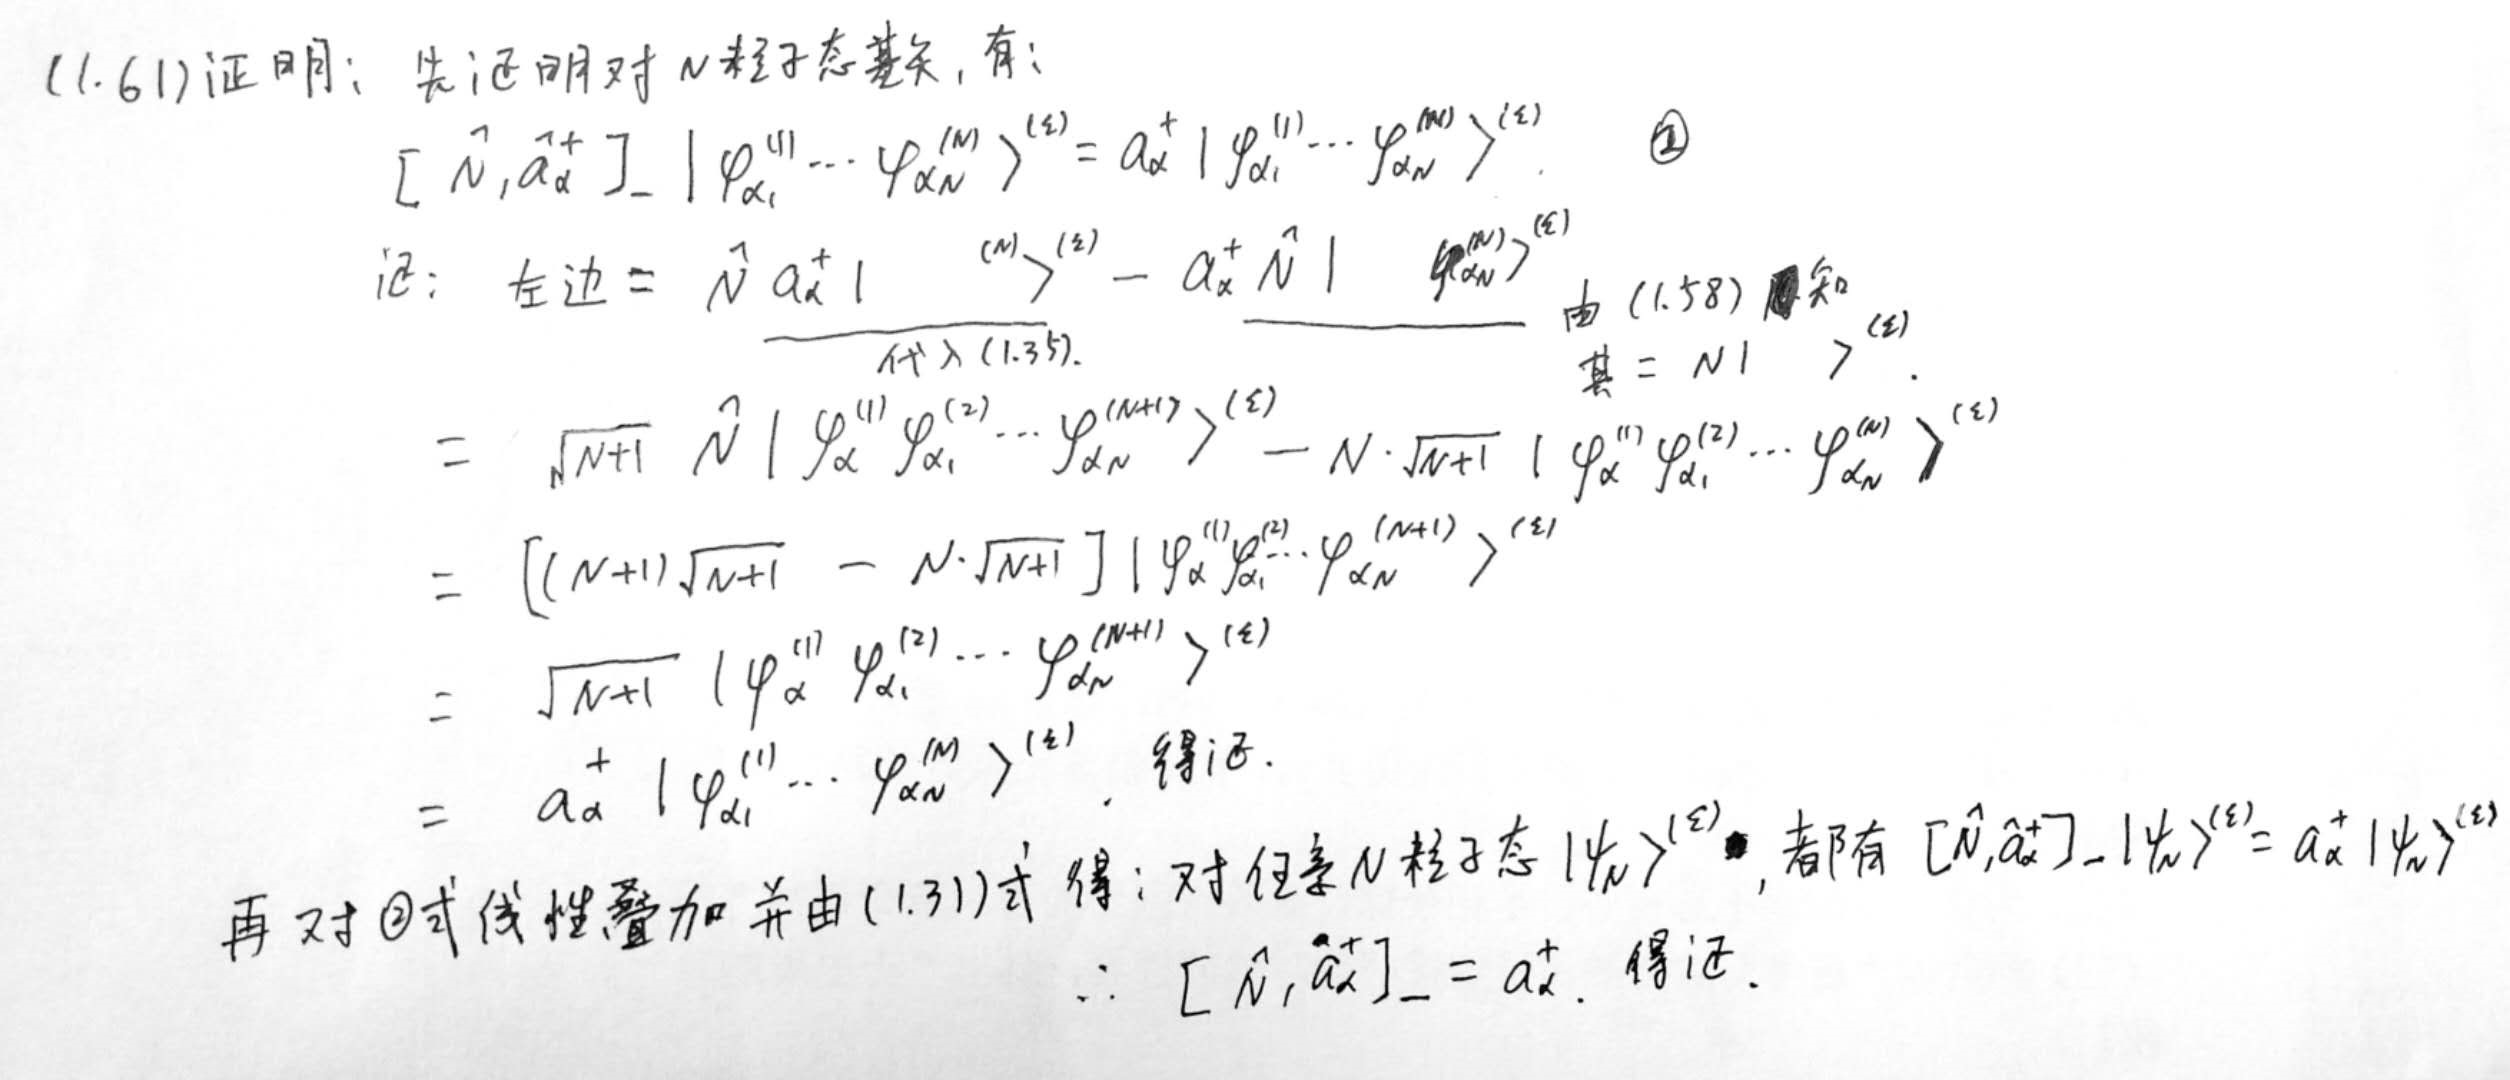 (1.61)证明: 先证明对N粒子态基矢,有:
[N̂, âα⁺]₋ |φα₁⁽¹⁾ ⋯ φαN⁽ᴺ⁾⟩⁽ᵋ⁾ = aα⁺ |φα₁⁽¹⁾ ⋯ φαN⁽ᴺ⁾⟩⁽ᵋ⁾. ②
证: 左边 = N̂ aα⁺ | ⁽ᴺ⁾⟩⁽ᵋ⁾ − aα⁺ N̂ | φαN⁽ᴺ⁾⟩⁽ᵋ⁾ 由(1.58)知
代入(1.35). 其 = N | ⟩⁽ᵋ⁾.
= √(N+1) N̂ |φα⁽¹⁾ φα₁⁽²⁾ ⋯ φαN⁽ᴺ⁺¹⁾⟩⁽ᵋ⁾ − N·√(N+1) |φα⁽¹⁾ φα₁⁽²⁾ ⋯ φαN⁽ᴺ⁾⟩⁽ᵋ⁾
= [(N+1)√(N+1) − N·√(N+1)] |φα⁽¹⁾ φα₁⁽²⁾ ⋯ φαN⁽ᴺ⁺¹⁾⟩⁽ᵋ⁾
= √(N+1) |φα⁽¹⁾ φα₁⁽²⁾ ⋯ φαN⁽ᴺ⁺¹⁾⟩⁽ᵋ⁾
= aα⁺ |φα₁⁽¹⁾ ⋯ φαN⁽ᴺ⁾⟩⁽ᵋ⁾. 得证.
再对②式线性叠加并由(1.31)式得: 对任意N粒子态|ψN⟩⁽ᵋ⁾, 都有[N̂, âα⁺]₋|ψN⟩⁽ᵋ⁾ = aα⁺|ψN⟩⁽ᵋ⁾
∴ [N̂, âα⁺]₋ = aα⁺. 得证.